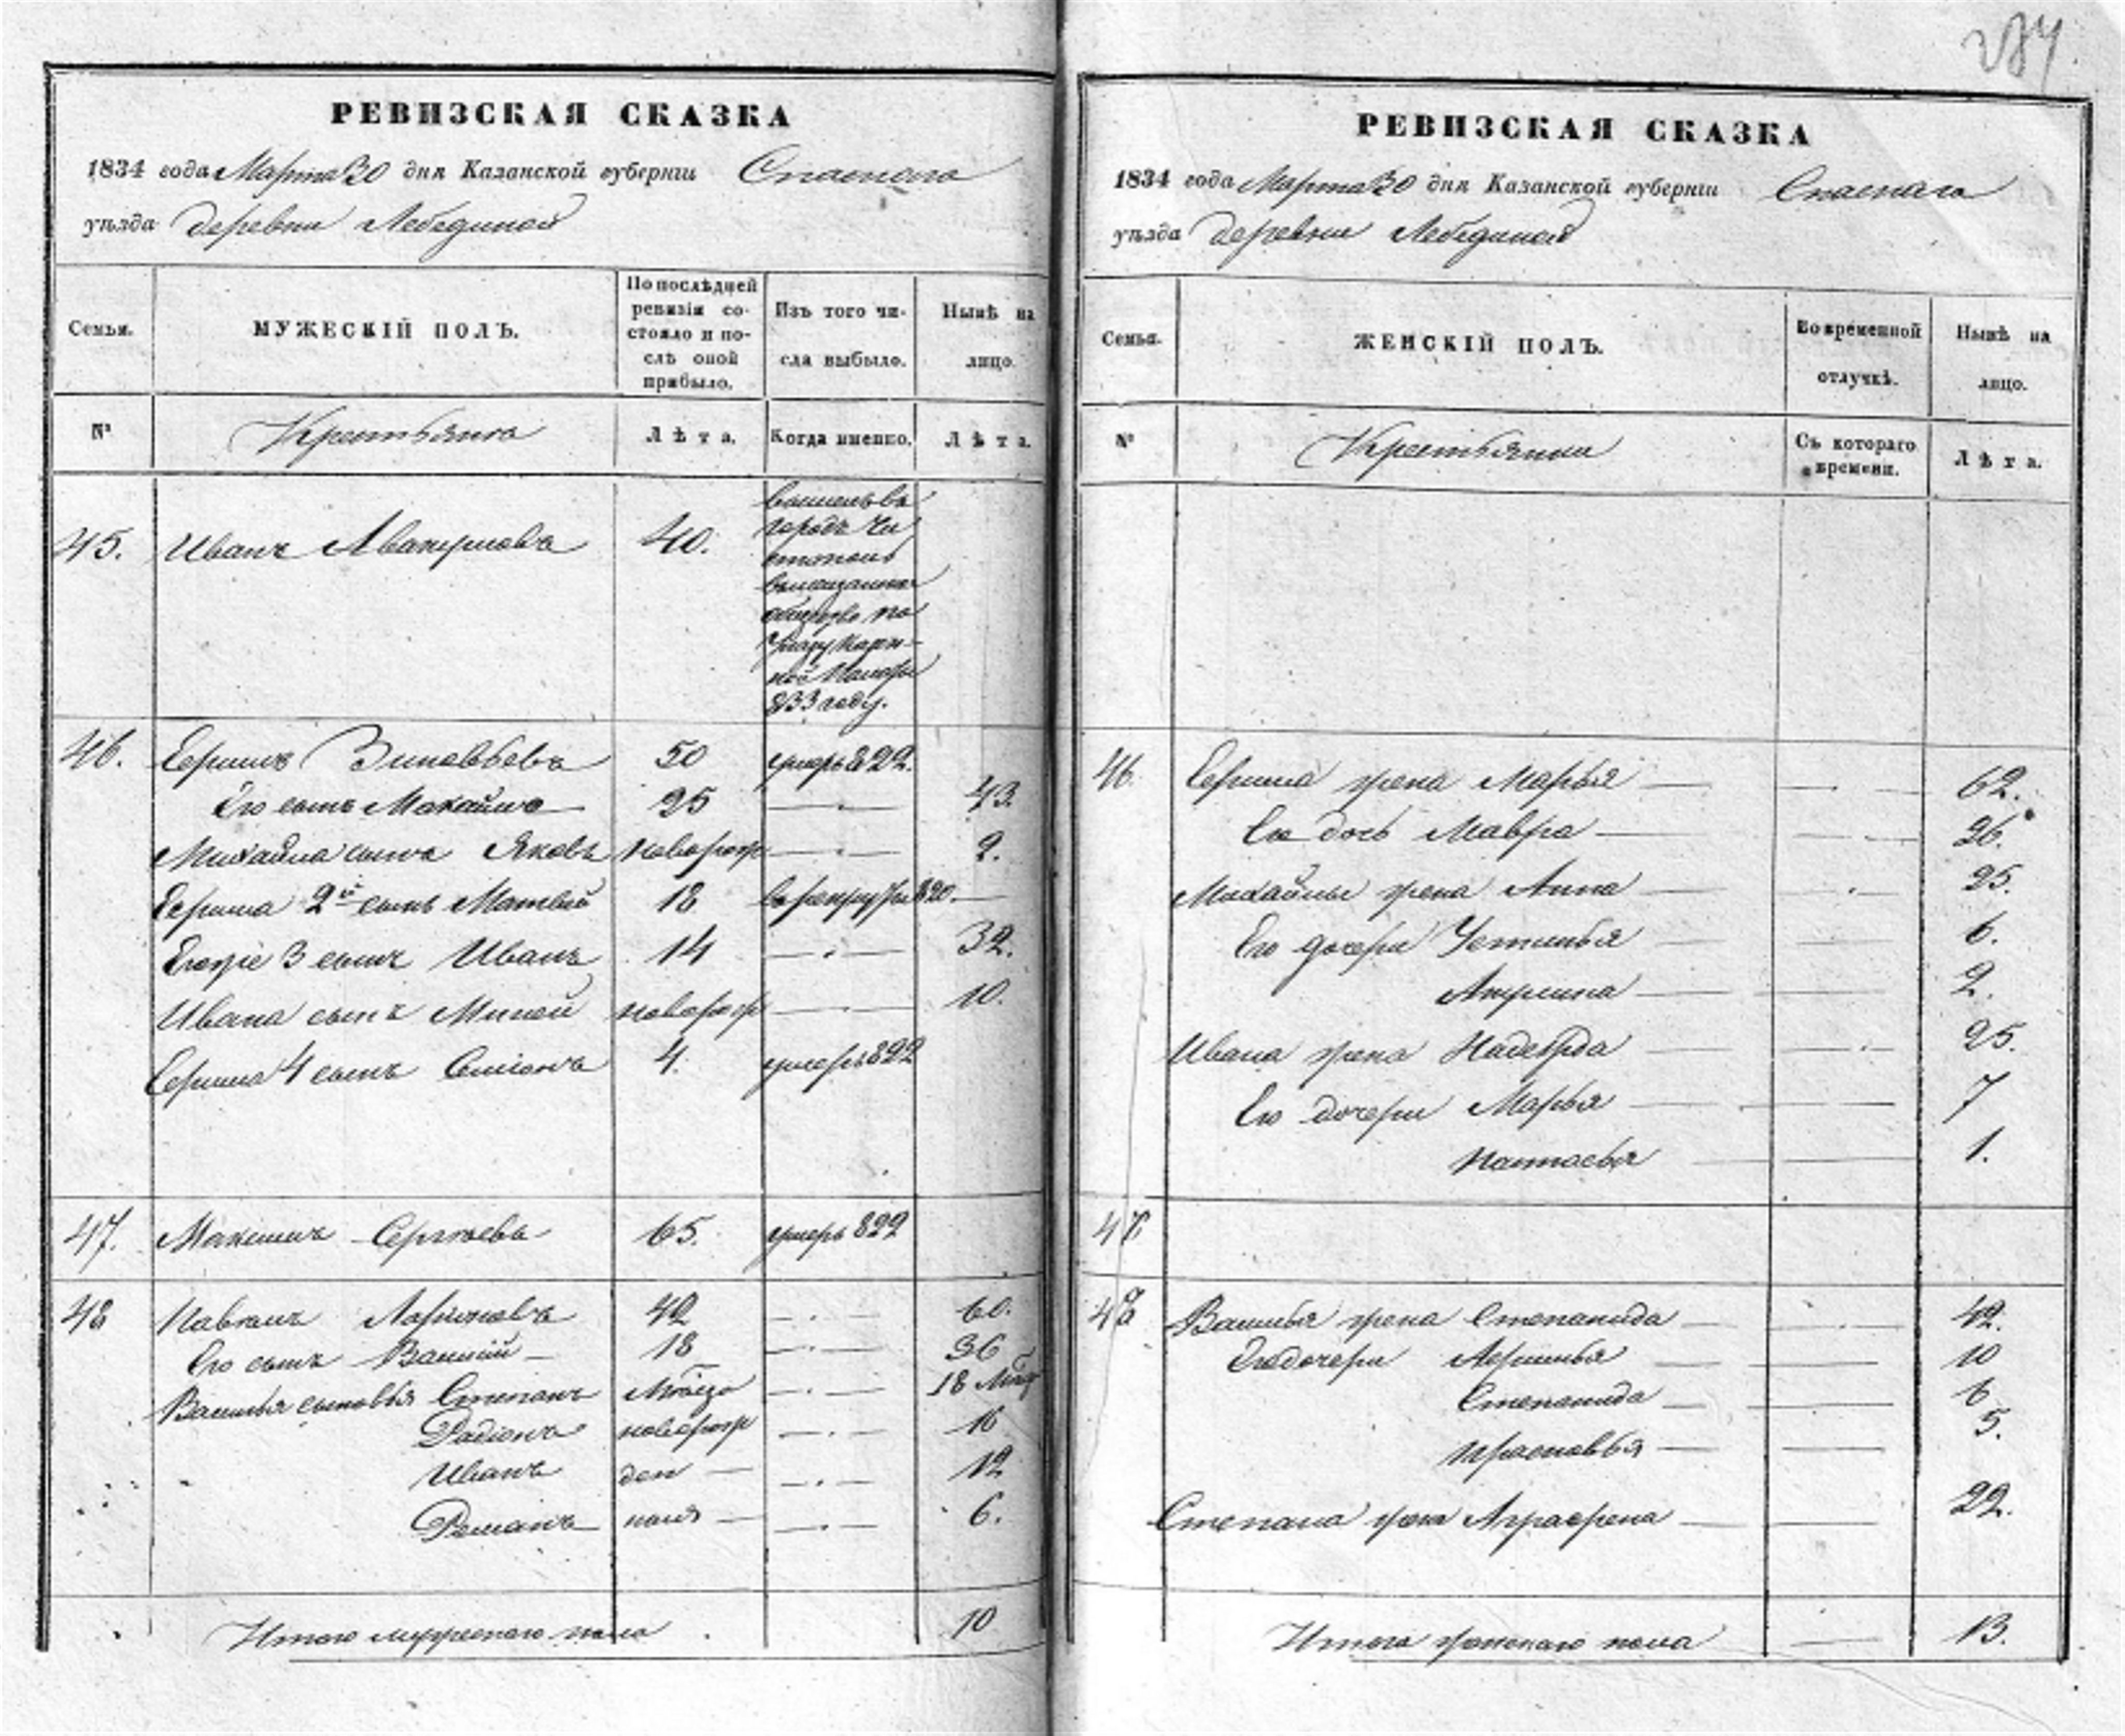 284.
РЕВИЗСКАЯ СКАЗКА
1834 года Марта 30 дня Казанской губернiи Спаскаго
уѣзда деревни Лебединой
Семьи.
МУЖЕСКIЙ ПОЛЪ.
По послѣдней ревизiи состояло и послѣ оной прибыло.
Изъ того числа выбыло.
Нынѣ на лицо.
№
Крестьяне
Лѣта.
Когда именно.
Лѣта.
45. Иванъ Авакумовъ 40.
городъ Чи
стополь
общество по
Указу Казен-
ной Палаты
833 году.
46. Ериминъ Зиновьевъ 50 умеръ 822.
Его сынъ Михайло 25 43.
Михайла сынъ Яковъ новорож 2.
2й сынъ Матвей 18 в рекруты 820.
Егоже 3 сынъ Иванъ 14 32.
Ивана сынъ Миней новорож 10.
4 сынъ Симионъ 4. умеръ 822
47. Максимъ Сергѣевъ 65. умеръ 822
48 Павелъ Ларионовъ 42 60.
Его сынъ Василий 18 36
Василья сыновья Степанъ 18
Радiонъ новорож 16
Иванъ ден 12
Романъ ныя 6.
Итого мужескаго пола 10
РЕВИЗСКАЯ СКАЗКА
1834 года Марта 30 дня Казанской губернiи Спаскаго
уѣзда деревни Лебединой
Семьи.
ЖЕНСКIЙ ПОЛЪ.
Во временной отлучкѣ.
Нынѣ на лицо.
№
Крестьянки
Съ котораго времени.
Лѣта.
46. жена Марья 62.
Ея дочь Мавра 26.
Михайлы жена Анна 25.
Его дочери Устинья 6.
Акулина 2.
Ивана жена Надежда 25.
Ея дочери Марья 7
Настасья 1.
47
48 Василья жена Степанида 42.
Ея дочери 10
Степанида 6
Прасковья 5.
Степана жена Аграфена 22.
Итого женскаго пола 13.